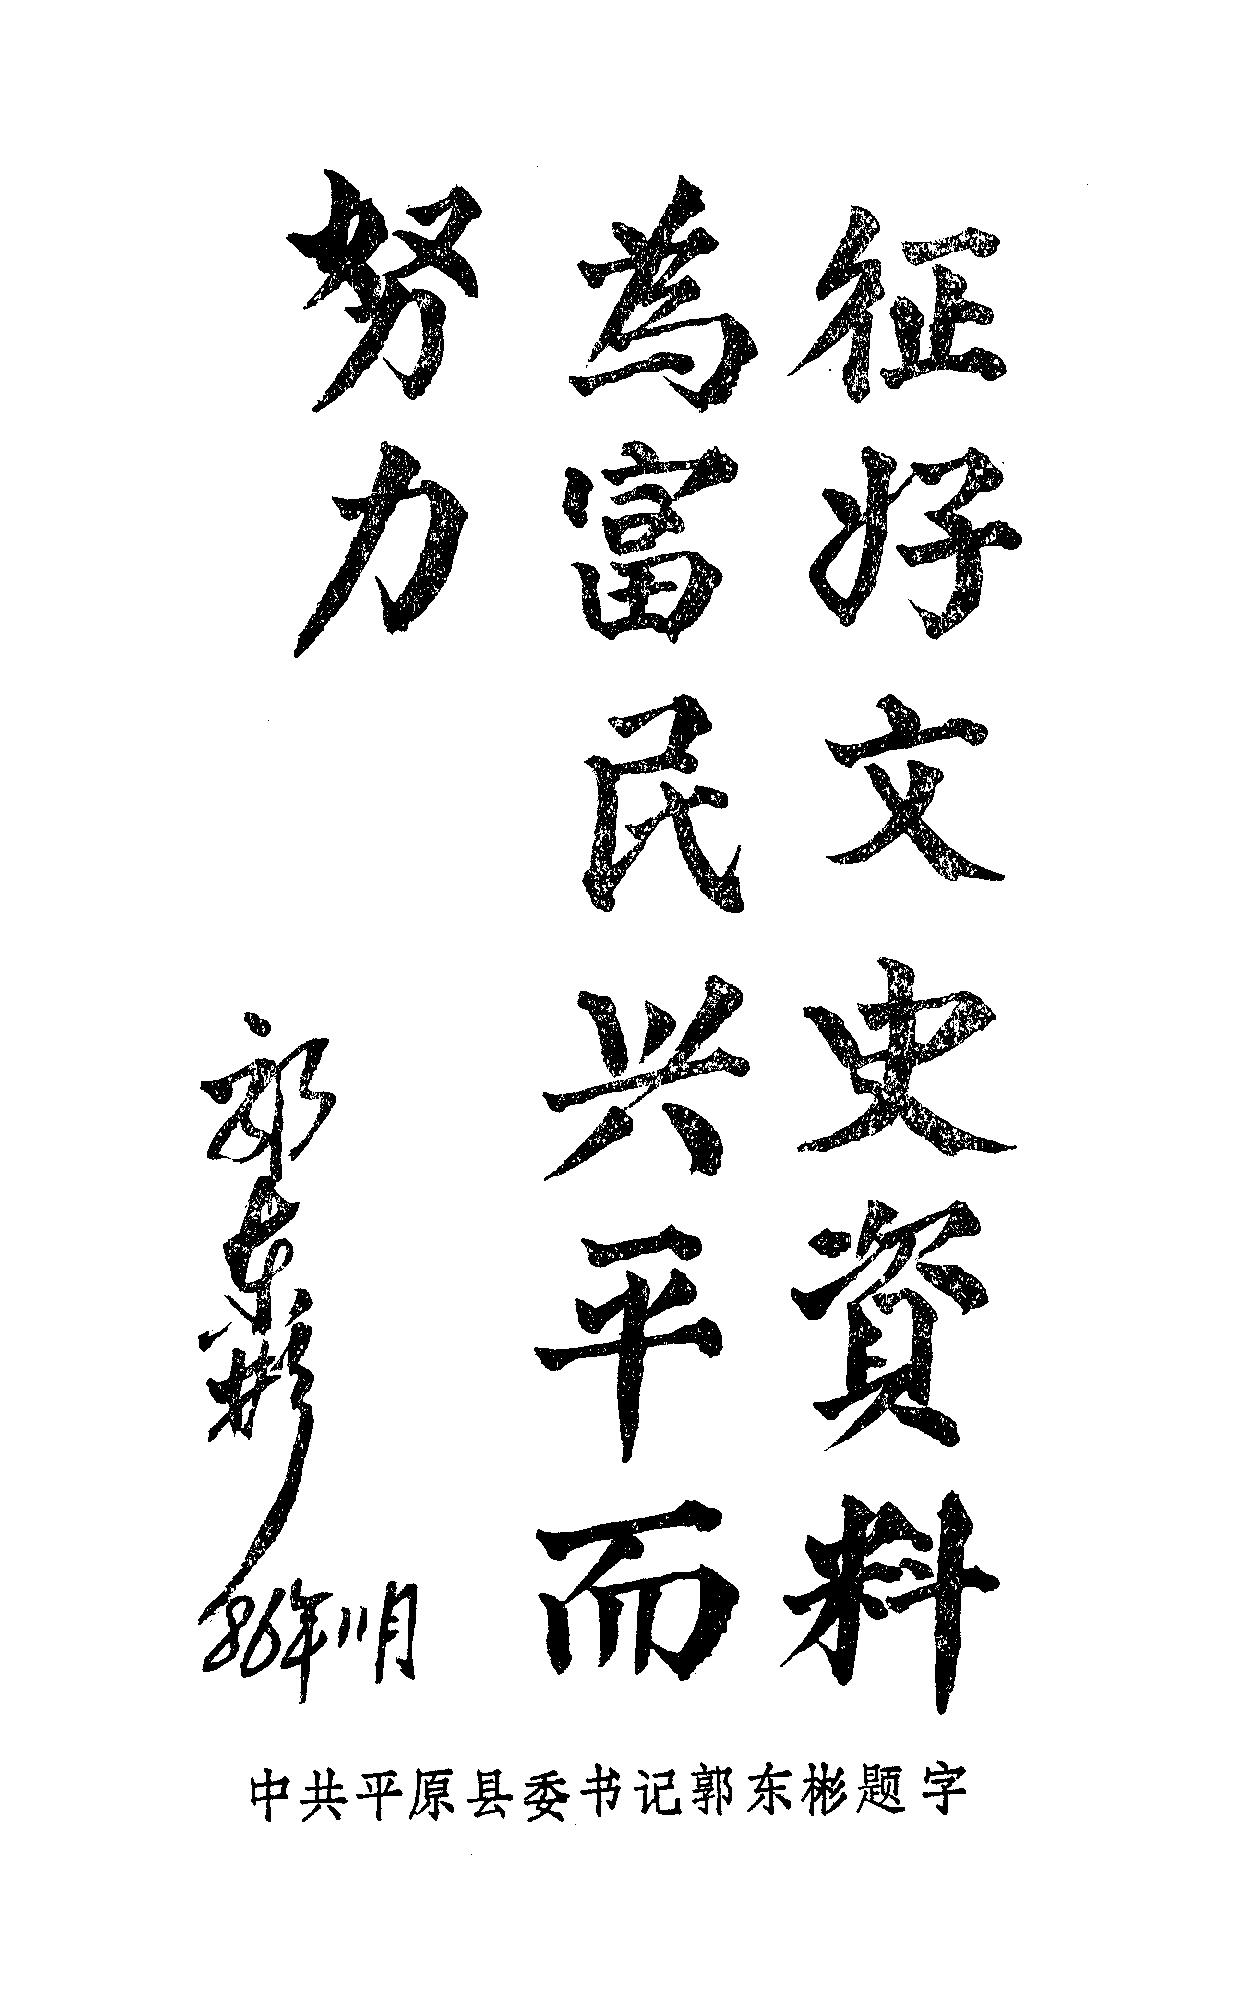 征好文史資料
為富民兴平而
努力
郭东彬
86年11月
中共平原县委书记郭东彬题字